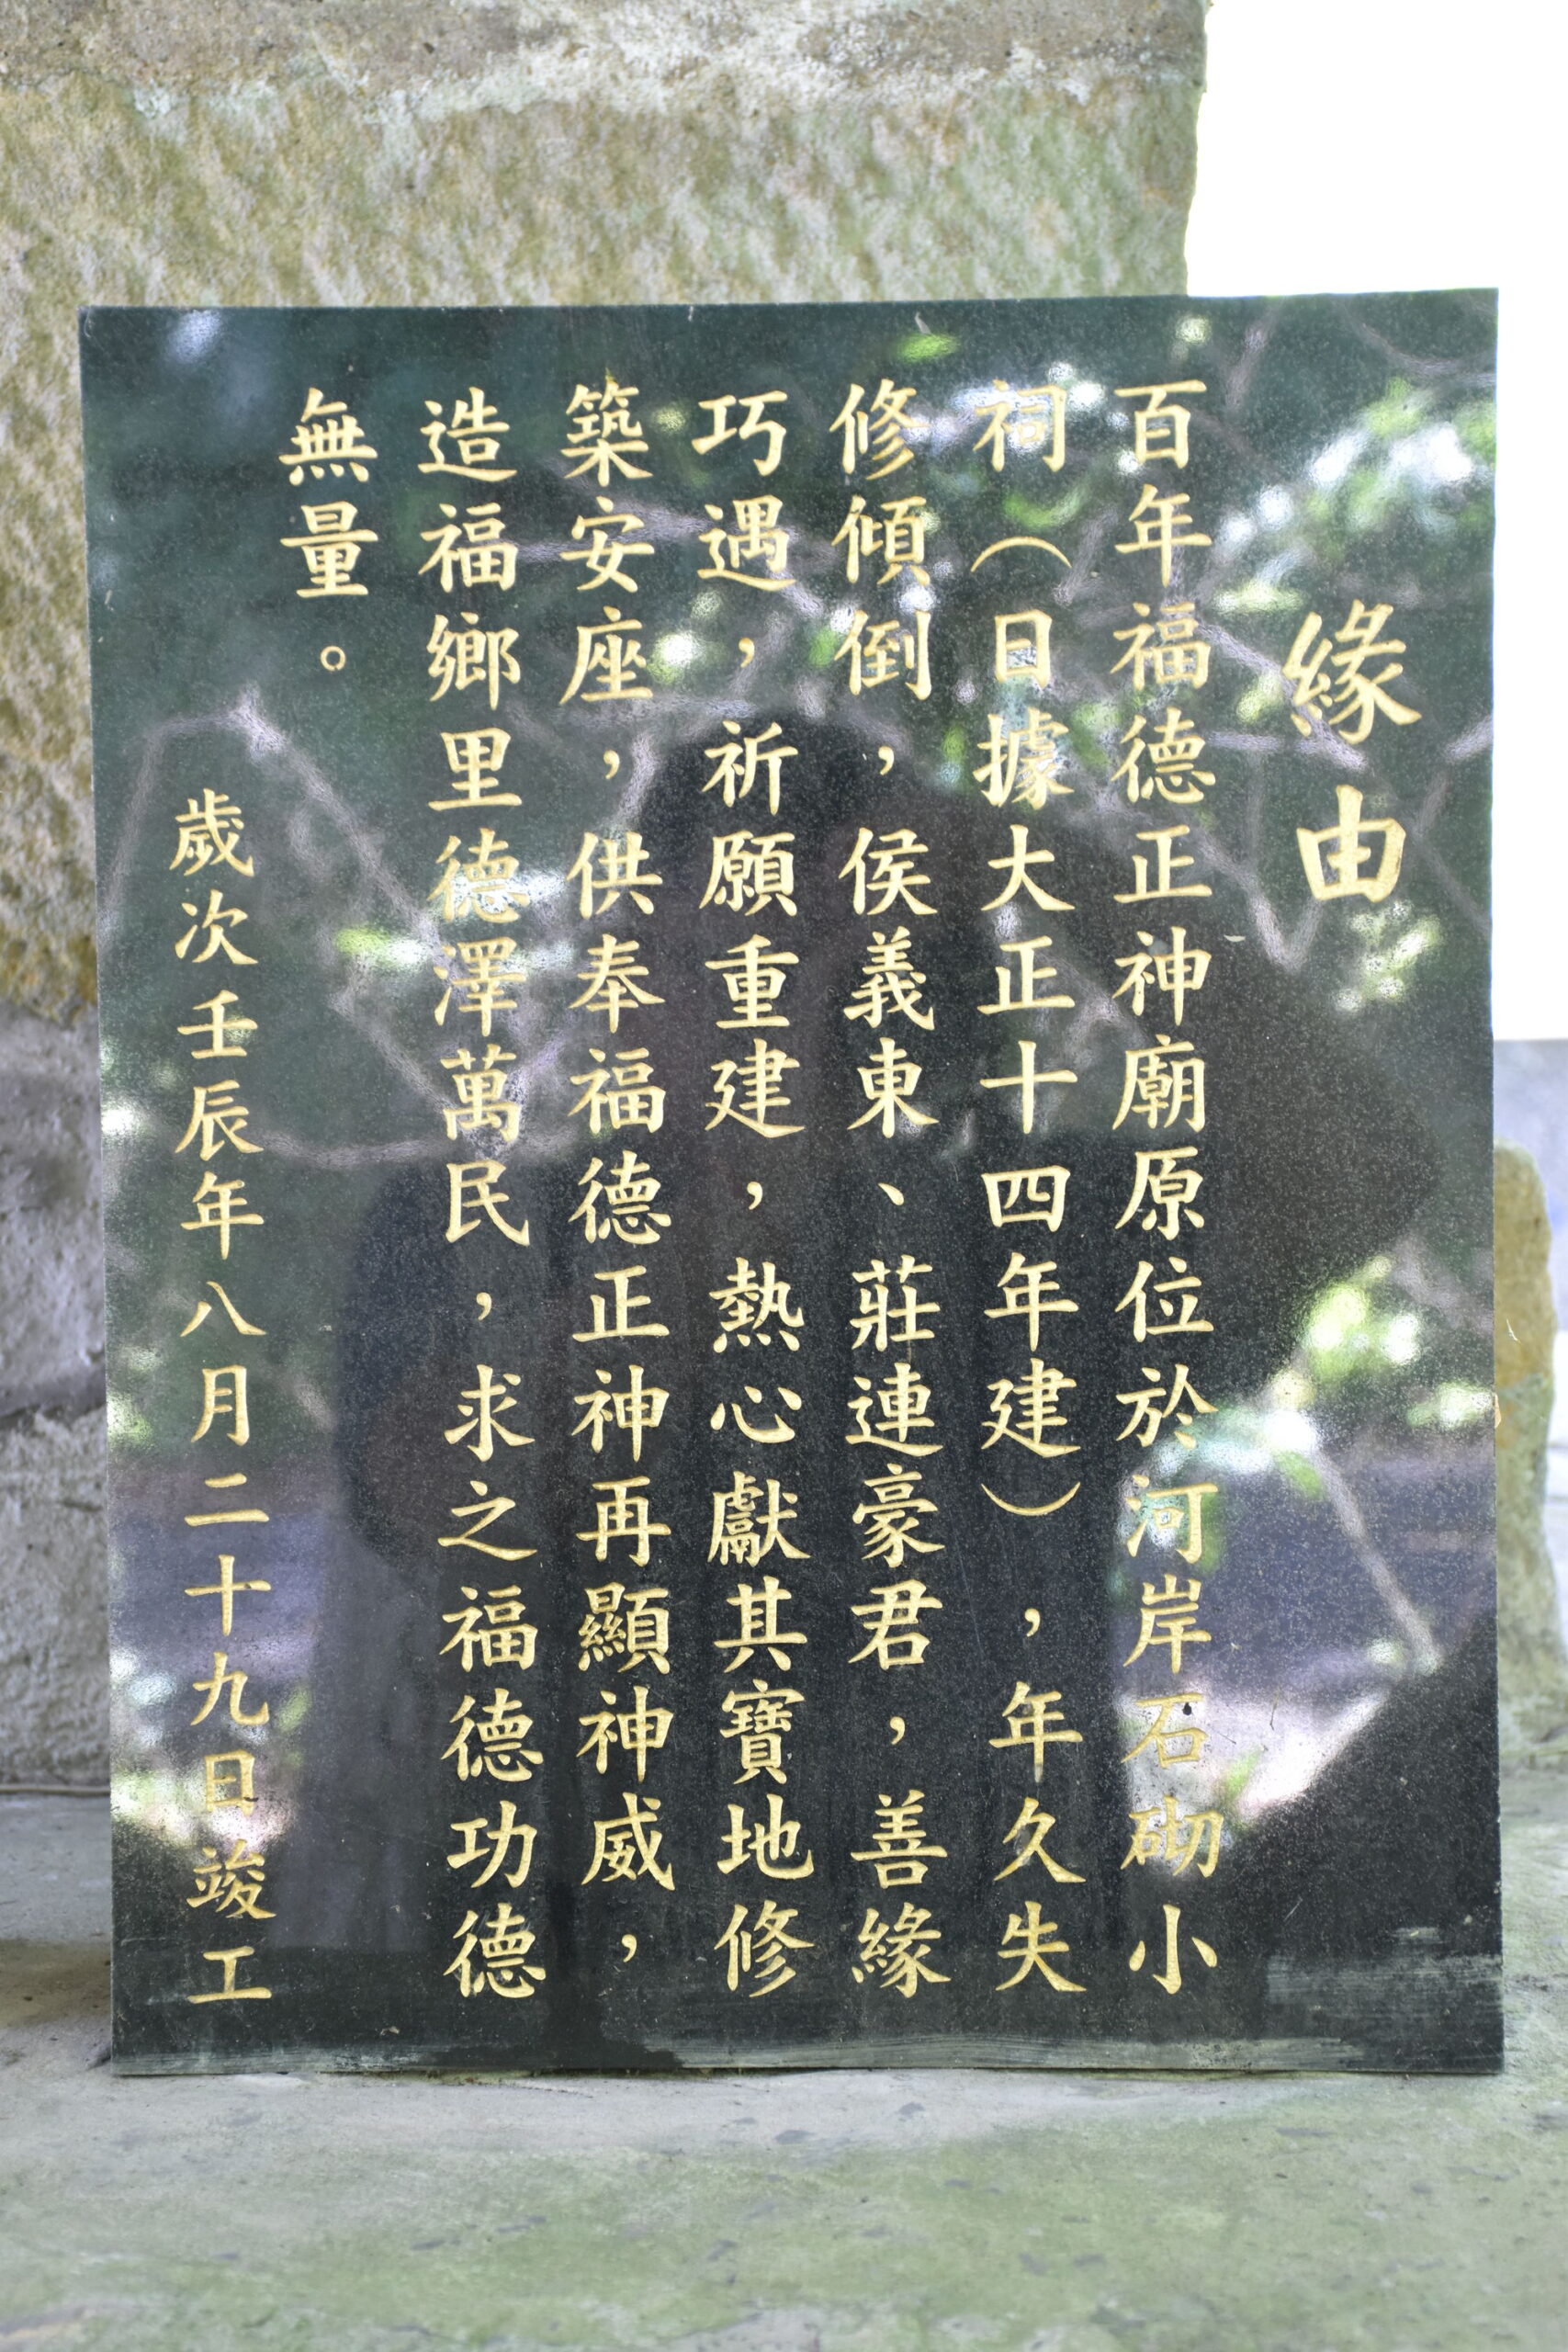 緣由
百年福德正神廟原位於河岸石砌小
祠（日據大正十四年建），年久失
修傾倒，侯義東、莊連豪君，善緣
巧遇，祈願重建，熱心獻其寶地修
築安座，供奉福德正神再顯神威，
造福鄉里德澤萬民，求之福德功德
無量。
歲次壬辰年八月二十九日竣工